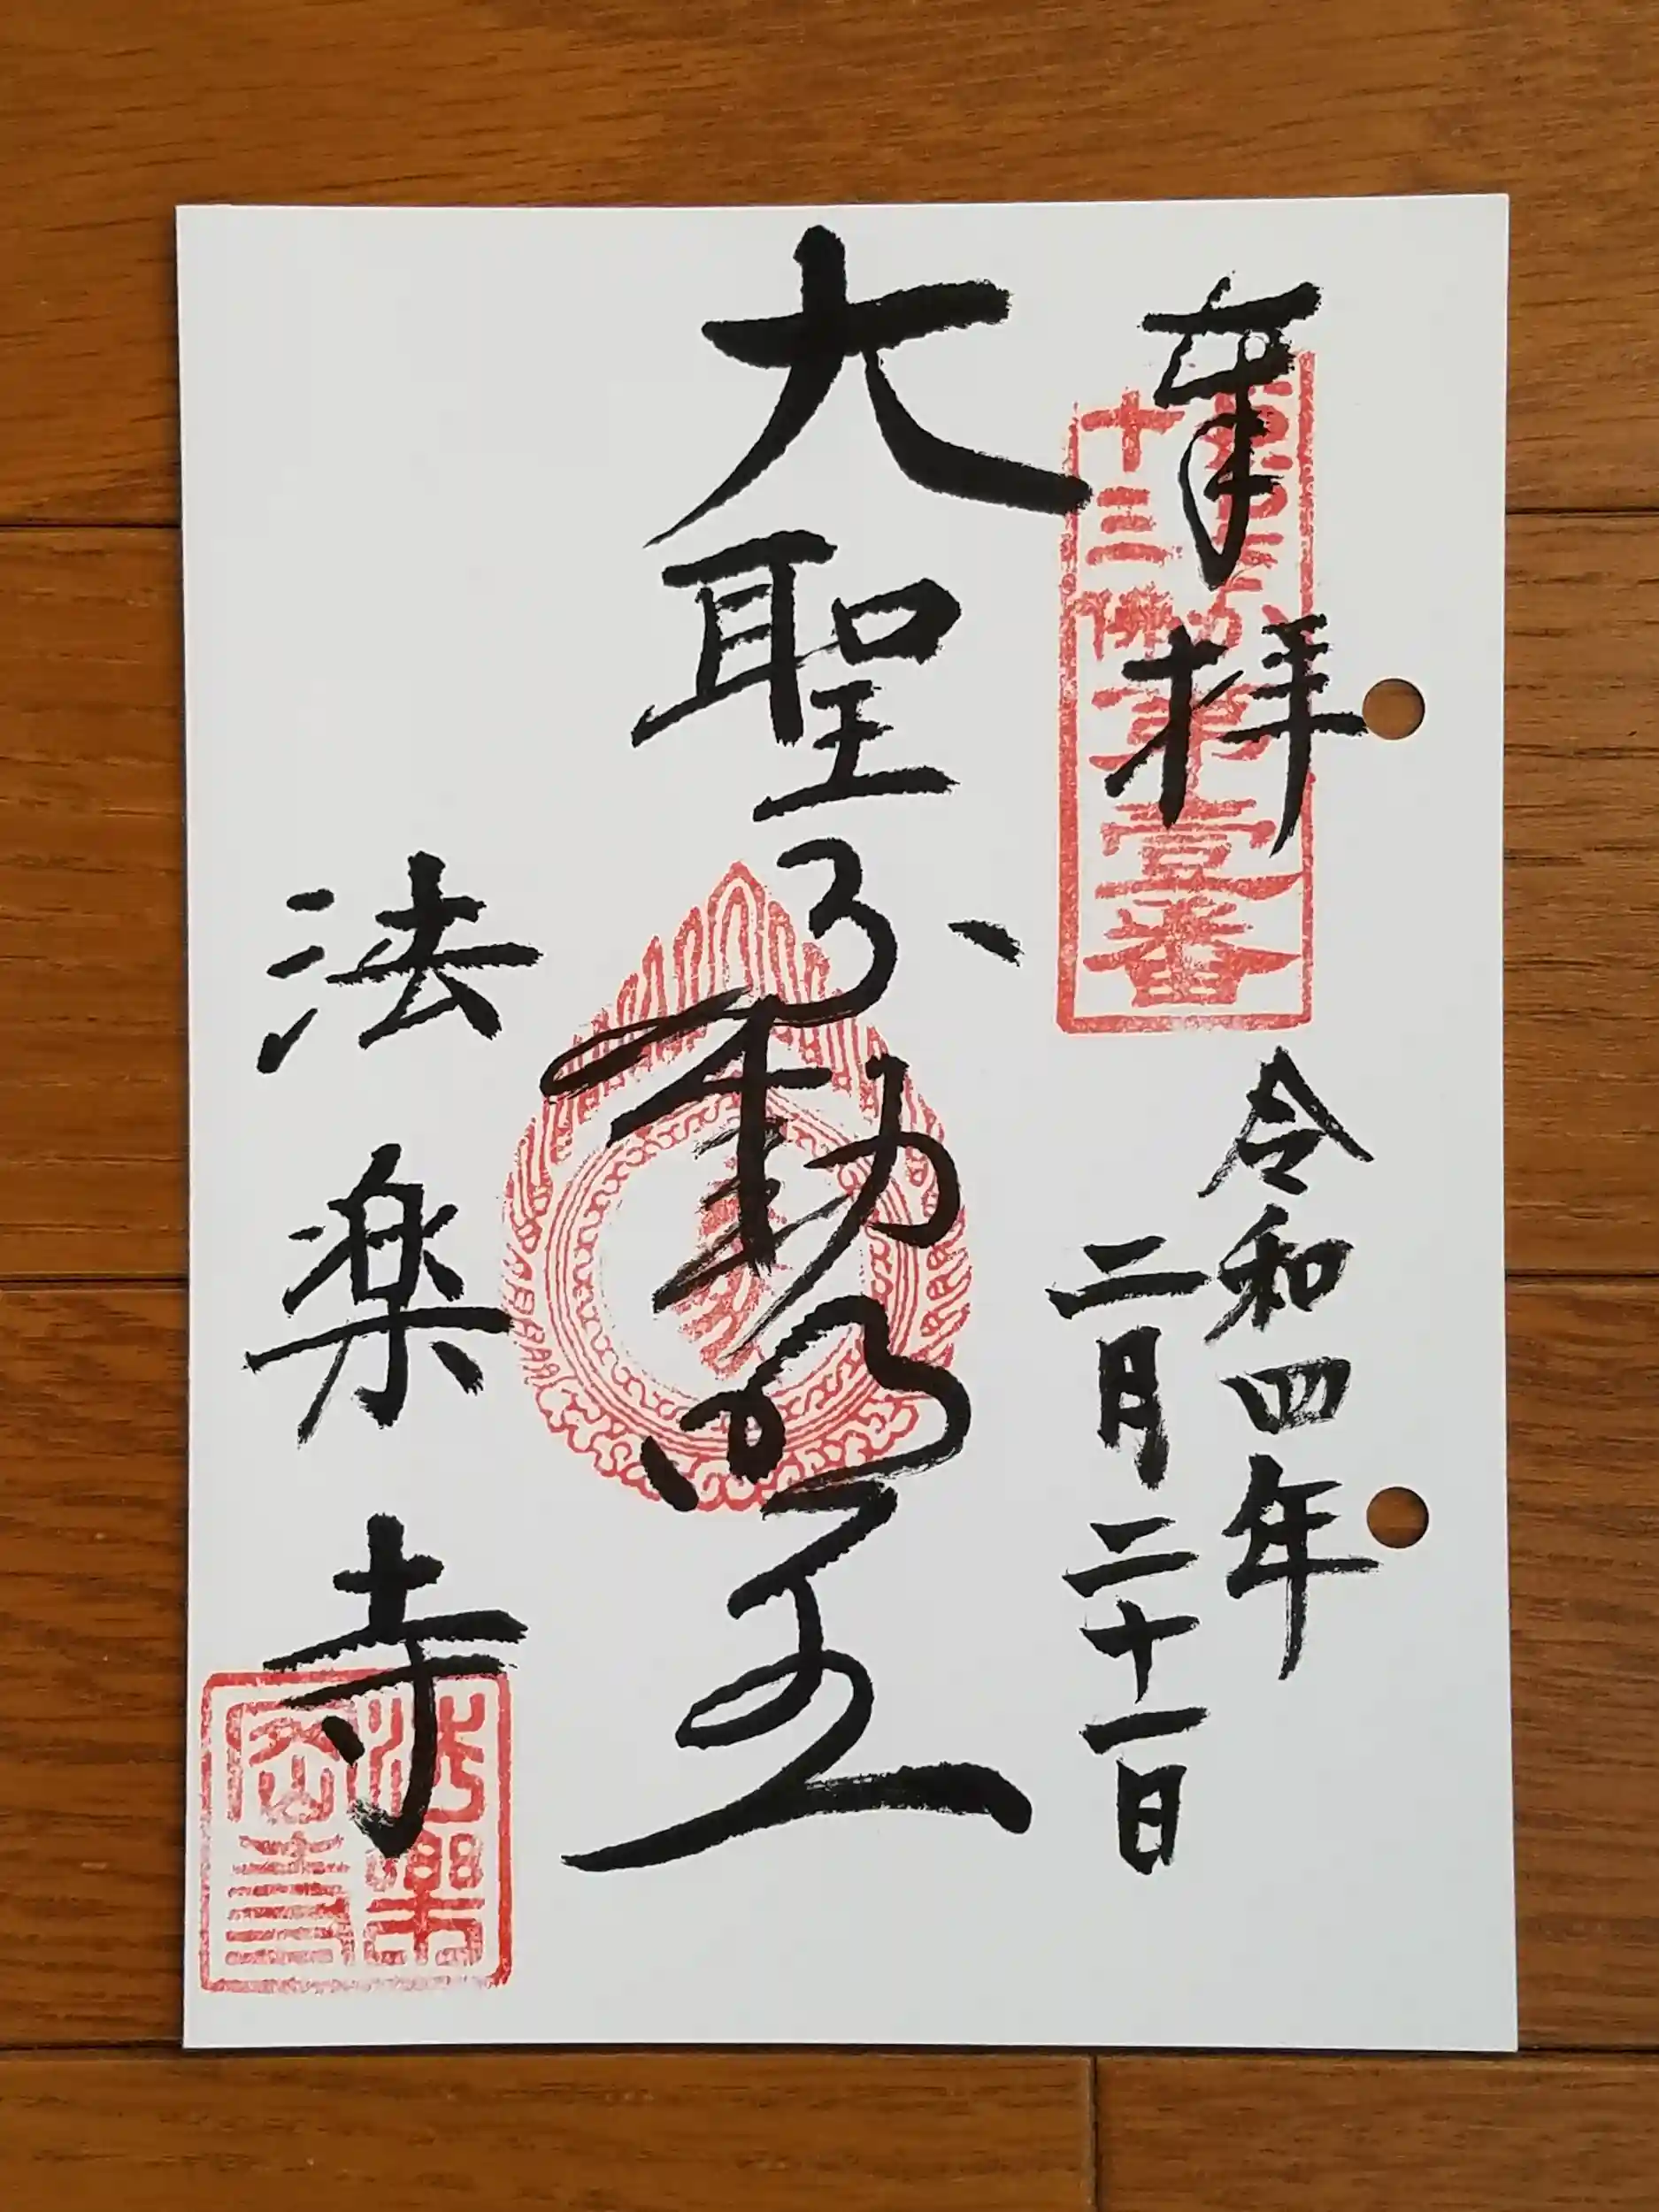 奉拝
十三佛
第壹番
令和四年
二月二十一日
大聖不動明王
法楽寺
法樂